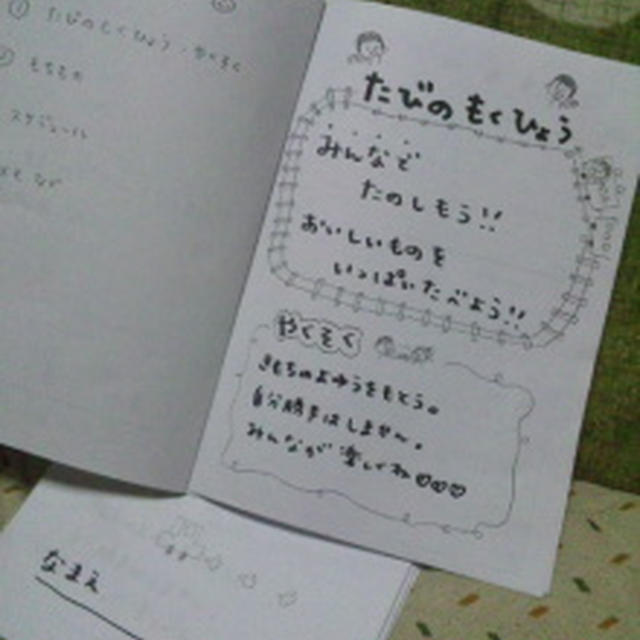 ① たびのもくひょう・やくそく
② もちもの
スケジュール
たびのもくひょう
みんなで
たのしもう!!
おいしいものを
いっぱいたべよう!!
やくそく
きもちのよゆうをもとう。
自分勝手はしません。
みんなが楽しくね♡♡♡
なまえ